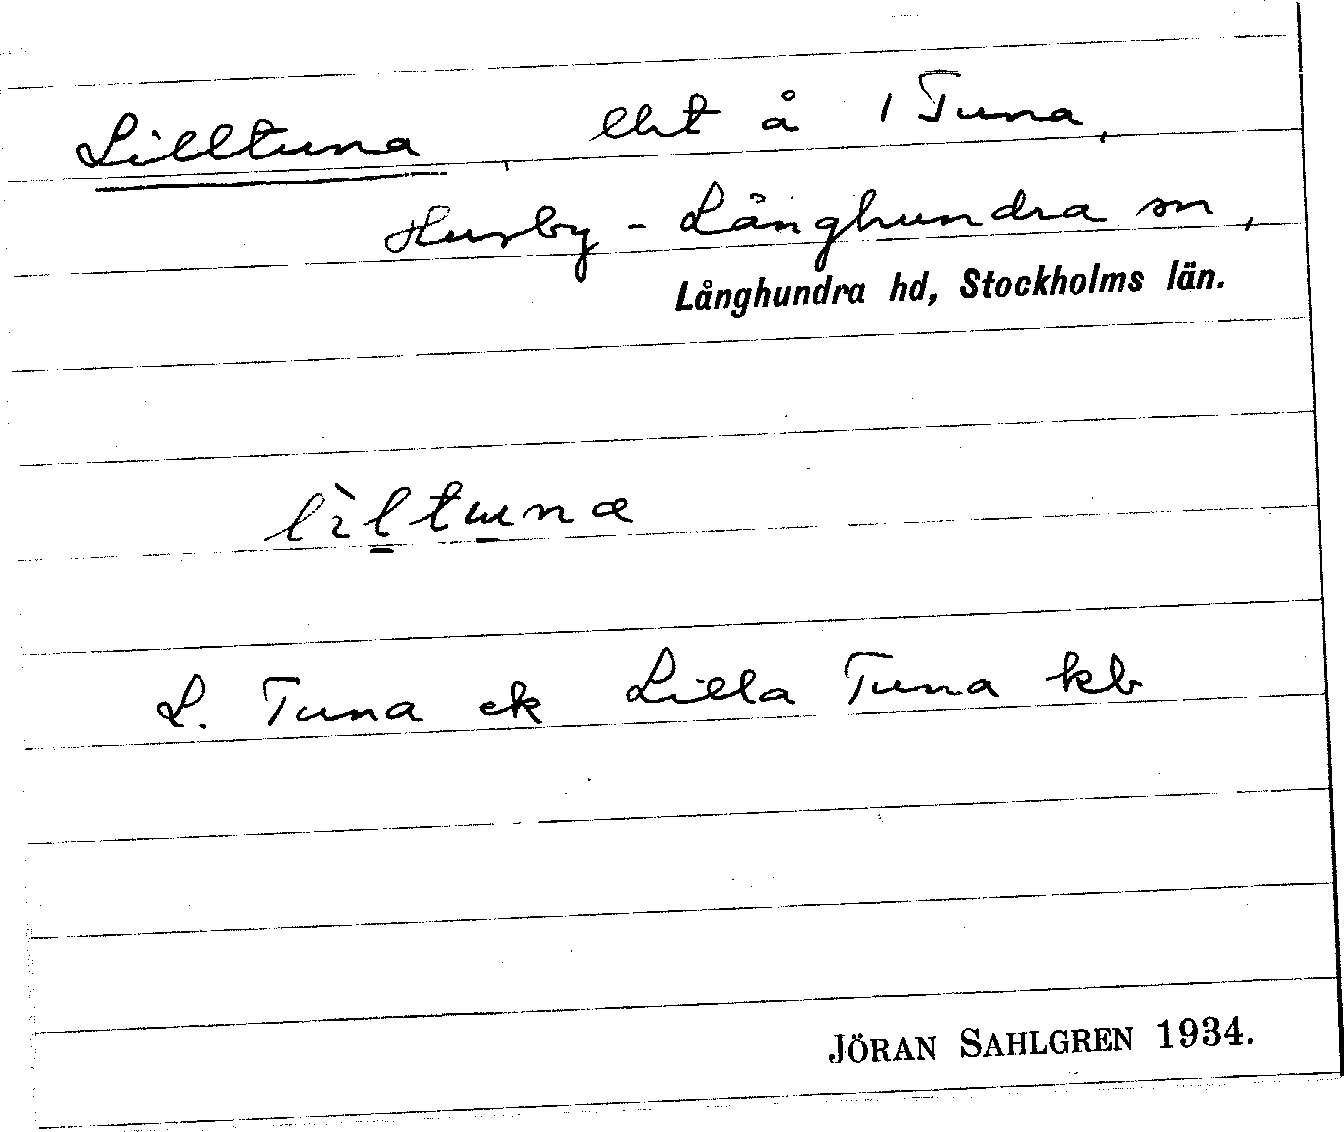 Lilltuna, lht å 1 Tuna,
Husby-Långhundra sn,
Långhundra hd, Stockholms län.
lìltuna
L. Tuna ek Lilla Tuna kb
JÖRAN SAHLGREN 1934.